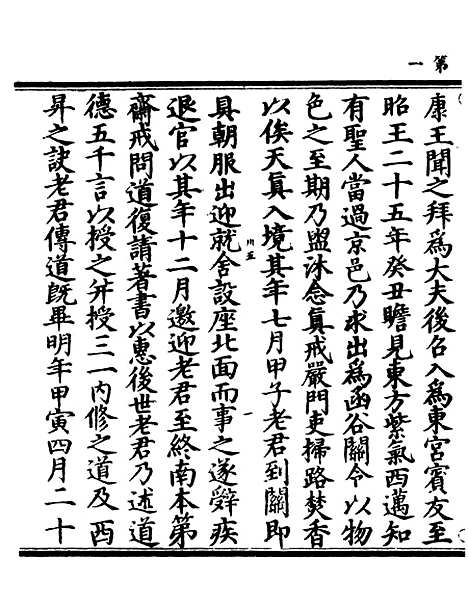 第一
康王聞之拜爲大夫後召入爲東宮賓友至
昭王二十五年癸丑瞻見東方紫氣西邁知
有聖人當過京邑乃求出爲函谷關令以物
色之至期乃盥沐念真戒嚴門吏掃路焚香
以俟天真入境其年七月甲子老君到關即
具朝服出迎就舍設座北面而事之遂辤疾
退官以其年十二月邀迎老君至終南本第
齋戒問道復請著書以惠後世老君乃述道
德五千言以授之并授三一內修之道及西
昇之訣老君傳道既畢明年甲寅四月二十